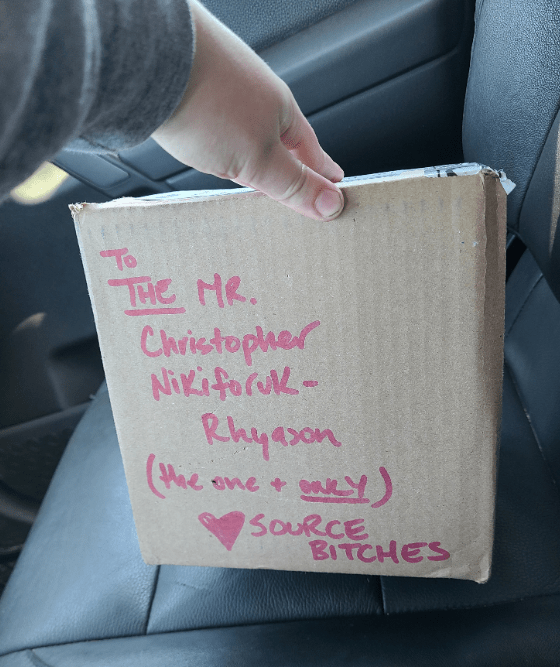 To
THE MR.
Christopher
Nikiforuk-
Rhyason
(the one + ONLY)
♥ SOURCE
BITCHES